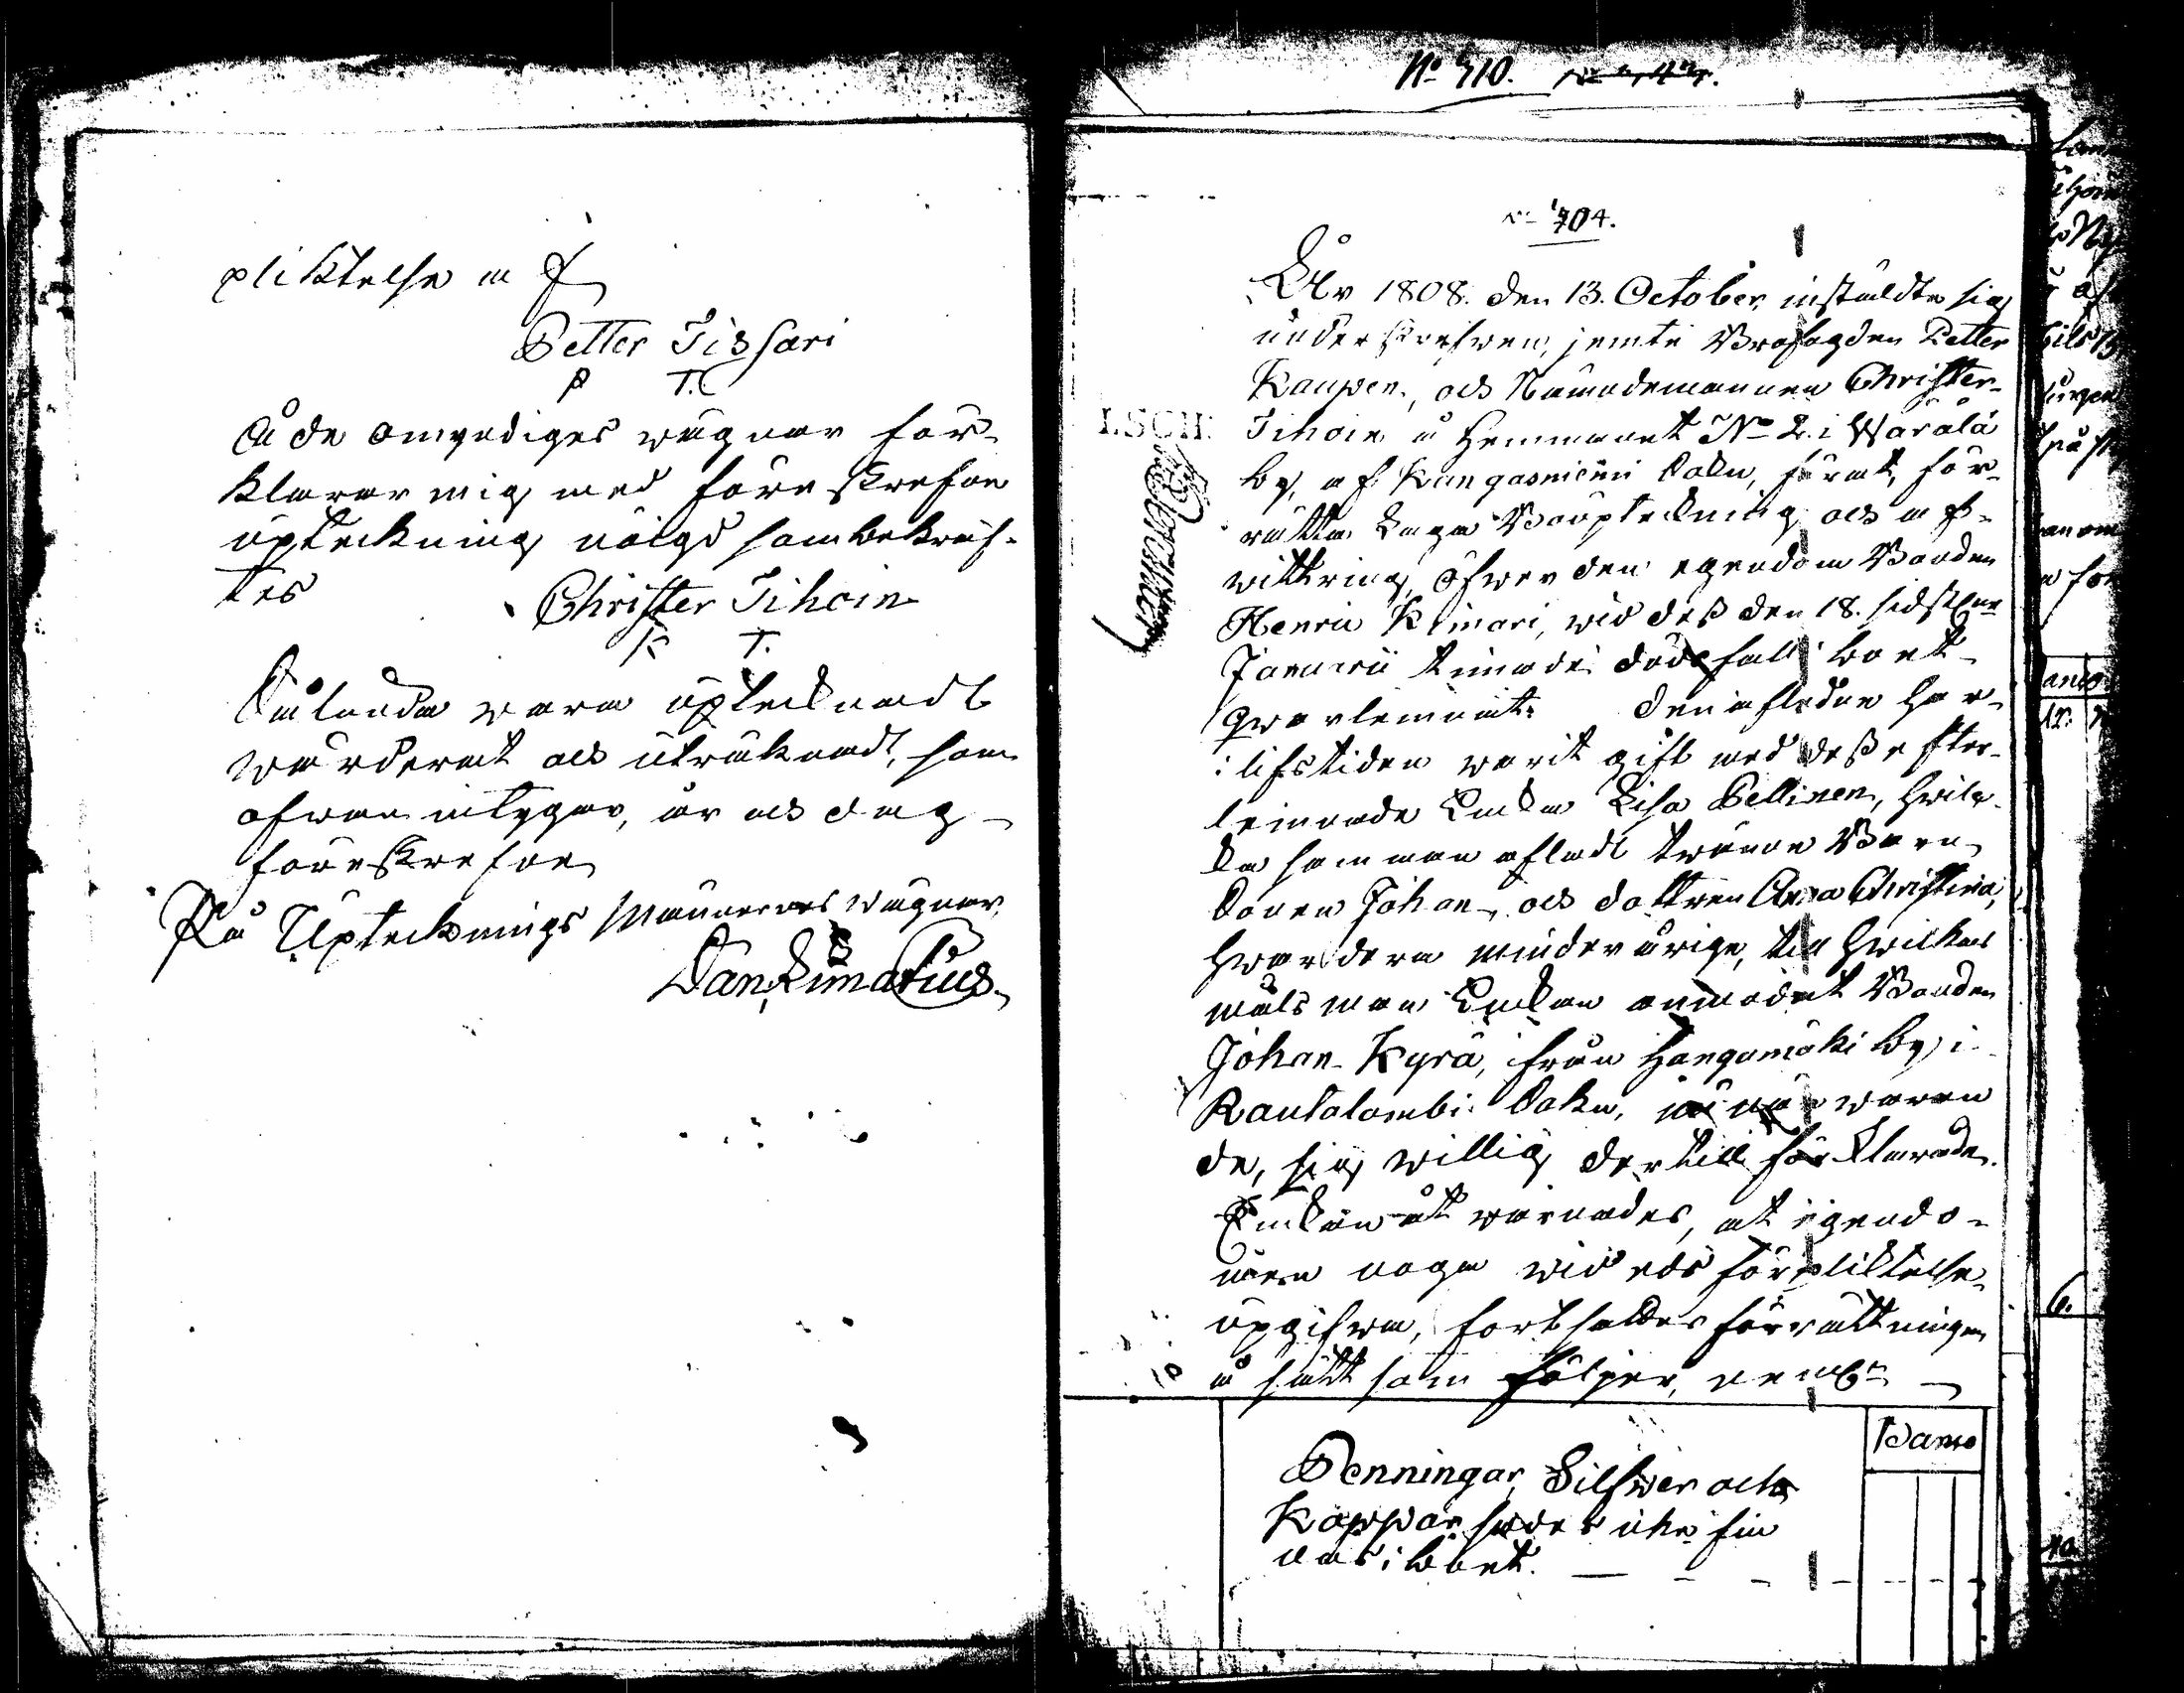 pliktelse af
Petter Tissari
P T.
Å de omyndiges wägnar för-
klarar mig med föreskrefne
upteckning nöigd som bekräf-
tes Christer Tihoin
K T.
Sålunda wara uptecknadt
wärderat och uträknadt, som
ofwan intygar, år och dag
föreskrefne
På Uptecknings Männernes wägnar
Dan. Limatius
No 710.
No 704.
År 1808. den 13. October, instäldte sig
underskrefwen, jemte Brofogden Petter
Kaupen, och Nämndemannen Christer
Tihoin å Hemmanet No 2. i Warala
by, af Kangasniemi Sokn, för at för-
rätta Laga Bouptekning och af-
wittring, öfwer den egendom Bonden
Henric Kimari, wid dess den 18. sidstl:ne
Januarii timade dödsfall i boet
qwarlemnat. Den aflidne har
i lifstiden warit gift med dess efter-
lemnade Enka Lisa Pellinen, hwilka
sammanafladt twänne Barn,
Sonen Johan, och dottren Anna Christina,
hwardera minderårige, till hwilkas
målsman Enkan anmodat Bonden
Johan Kyrä, ifrån Hangamäki by i
Rautalambi Sokn, som närwaran
de, sig willig dertill förklarade.
Enkan åtwarnades, at egendo-
men noga wid eds förpliktelse
upgifwa, fortsattes förrättningen
å sätt som följer, neml:n
Banco
Penningar, Silfwer och
Koppar sades icke fin
nas i boet.